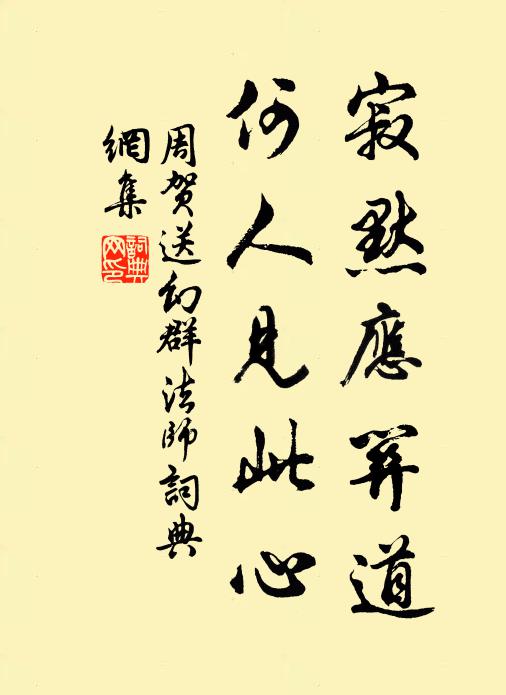 寂默應關道
何人見此心
周賀送幻群法師詞典
網集
詞典
网印